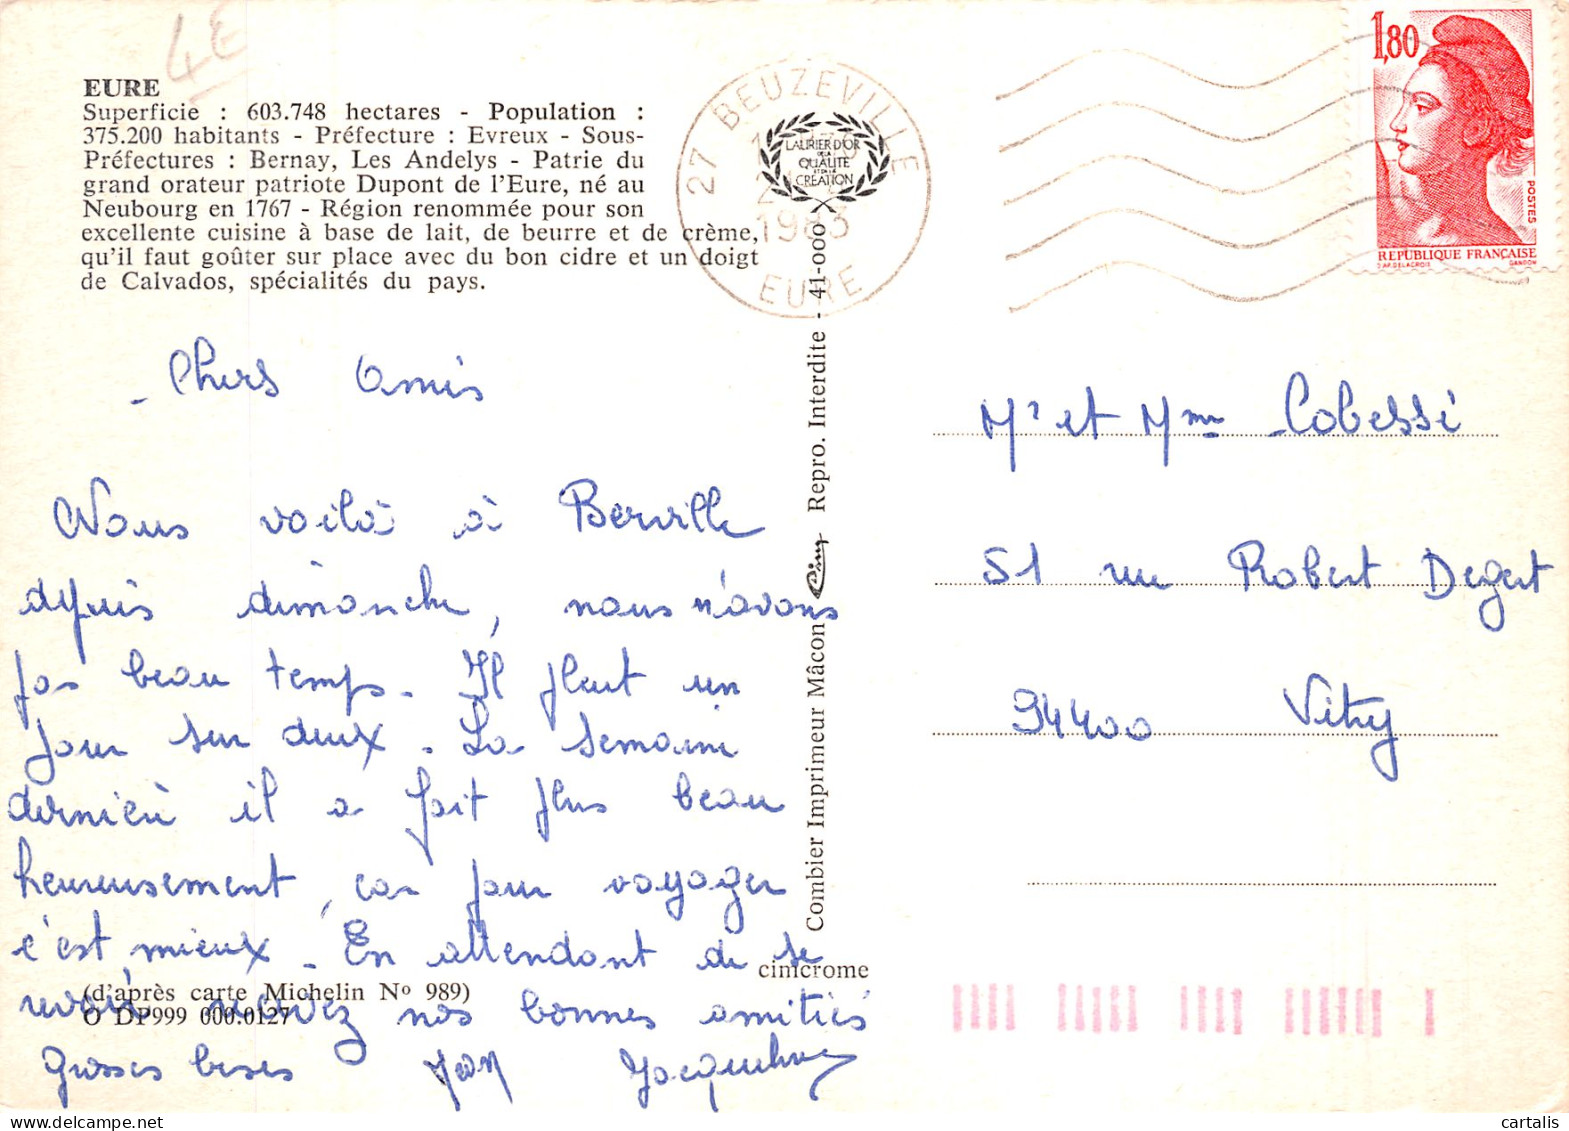 4E
EURE
Superficie : 603.748 hectares - Population :
375.200 habitants - Préfecture : Evreux - Sous-
Préfectures : Bernay, Les Andelys - Patrie du
grand orateur patriote Dupont de l'Eure, né au
Neubourg en 1767 - Région renommée pour son
excellente cuisine à base de lait, de beurre et de crème,
qu'il faut goûter sur place avec du bon cidre et un doigt
de Calvados, spécialités du pays.
27 BEUZEVILLE
1983
EURE
LAURIER D'OR
DE LA
QUALITÉ
ET DE LA
CRÉATION
1,80
POSTES
REPUBLIQUE FRANÇAISE
D'AP. DELACROIX GANDON
- Chers Amis
Nous voilà à Berville
depuis dimanche, nous n'avons
pas beau temps. Il pleut un
jour sur deux. La semaine
dernière il a fait plus beau
heureusement, car pour voyager
c'est mieux. En attendant de se
revoir recevez nos bonnes amitiés
Grosses bises Jean Jacqueline
(d'après carte Michelin No 989)
O DP999 000.0127
cimcrome
Combier Imprimeur Mâcon Cim Repro. Interdite - 41-000
Mr et Mme Cobessé
51 rue Robert Degert
94400 Vitry
cartalis